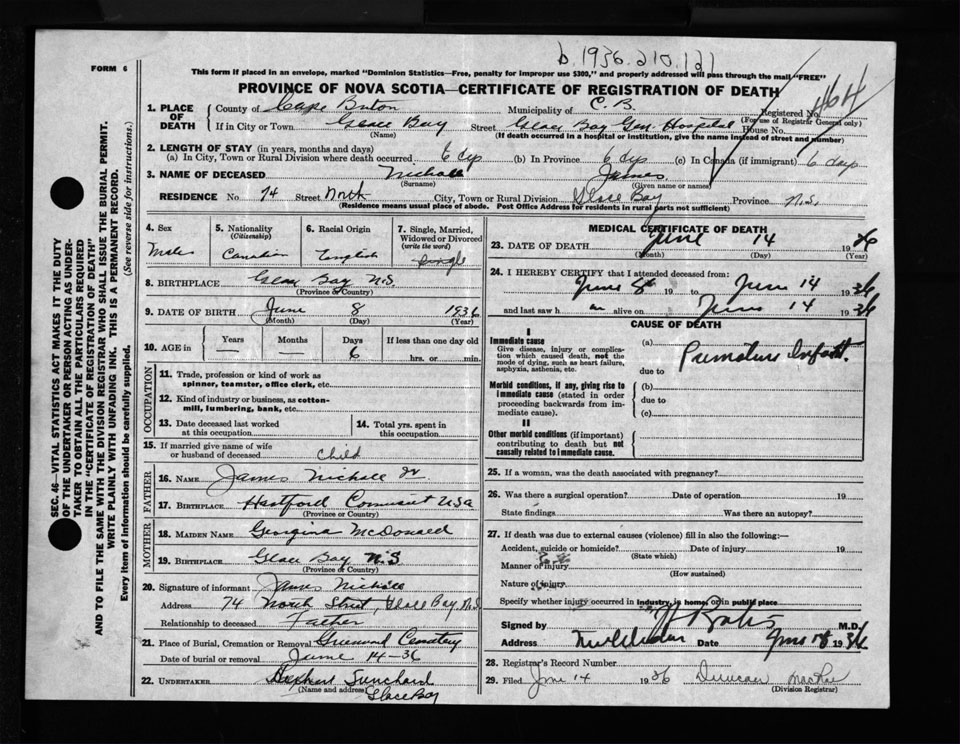 b. 1936. 210. 121
FORM 6
This form if placed in an envelope, marked "Dominion Statistics—Free, penalty for improper use $300," and properly addressed will pass through the mail "FREE"
PROVINCE OF NOVA SCOTIA—CERTIFICATE OF REGISTRATION OF DEATH
1. PLACE OF DEATH County of Cape Breton Municipality of C. B. Registered No. 464
(For use of Registrar General only)
If in City or Town Glace Bay Street Glace Bay Gen. Hospital House No.
(Name) (If death occurred in a hospital or institution, give the name instead of street and number)
2. LENGTH OF STAY (in years, months and days)
(a) In City, Town or Rural Division where death occurred 6 dys (b) In Province 6 dys (c) In Canada (if immigrant) 6 days
3. NAME OF DECEASED Nicholl James
(Surname) (Given name or names)
RESIDENCE No 74 Street North City, Town or Rural Division Glace Bay Province N.S.
(Residence means usual place of abode. Post Office Address for residents in rural parts not sufficient)
4. Sex Male
5. Nationality (Citizenship) Canadian
6. Racial Origin English
7. Single, Married, Widowed or Divorced (write the word) Single
8. BIRTHPLACE Glace Bay N.S.
(Province or Country)
9. DATE OF BIRTH June 8 1936
(Month) (Day) (Year)
10. AGE in Years — Months — Days 6 If less than one day old hrs. or min.
OCCUPATION
11. Trade, profession or kind of work as spinner, teamster, office clerk, etc.
12. Kind of industry or business, as cotton-mill, lumbering, bank, etc.
13. Date deceased last worked at this occupation
14. Total yrs. spent in this occupation
15. If married give name of wife or husband of deceased Child
FATHER
16. NAME James Nicholl Jr
17. BIRTHPLACE Hartford USA
(Province or Country)
MOTHER
18. MAIDEN NAME Georgina McDonald
19. BIRTHPLACE Glace Bay N.S
(Province or Country)
20. Signature of informant James Nicholl
Address 74 North Street, Glace Bay, N.S
Relationship to deceased Father
21. Place of Burial, Cremation or Removal Greenwood Cemetery
Date of burial or removal June 14-36
22. UNDERTAKER
(Name and address) Glace Bay
MEDICAL CERTIFICATE OF DEATH
23. DATE OF DEATH June 14 1936
(Month) (Day) (Year)
24. I HEREBY CERTIFY that I attended deceased from:
June 8 19 to June 14 1936
and last saw h alive on June 14 1936
CAUSE OF DEATH
I
Immediate cause
Give disease, injury or complication which caused death, not the mode of dying, such as heart failure, asphyxia, asthenia, etc.
(a) Premature Infant.
due to
Morbid conditions, if any, giving rise to immediate cause (stated in order proceeding backwards from immediate cause).
(b)
due to
(c)
II
Other morbid conditions (if important) contributing to death but not causally related to immediate cause.
25. If a woman, was the death associated with pregnancy?
26. Was there a surgical operation? Date of operation 19
State findings Was there an autopsy?
27. If death was due to external causes (violence) fill in also the following:—
Accident, suicide or homicide? Date of injury 19
(State which)
Manner of injury
(How sustained)
Nature of injury
Specify whether injury occurred in industry, in home, or in public place
Signed by M.D.
Address New Aberdeen Date 1936
28. Registrar's Record Number
29. Filed June 14 1936 Duncan MacRae
(Division Registrar)
SEC. 46—VITAL STATISTICS ACT MAKES IT THE DUTY
OF THE UNDERTAKER OR PERSON ACTING AS UNDER-
TAKER TO OBTAIN ALL THE PARTICULARS REQUIRED
IN THE "CERTIFICATE OF REGISTRATION OF DEATH"
AND TO FILE THE SAME WITH THE DIVISION REGISTRAR WHO SHALL ISSUE THE BURIAL PERMIT.
WRITE PLAINLY WITH UNFADING INK. THIS IS A PERMANENT RECORD.
Every item of information should be carefully supplied. (See reverse side for instructions.)